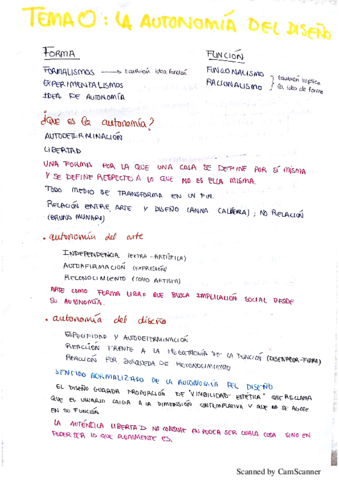 TEMA 0: LA AUTONOMÍA DEL DISEÑO
FORMA
FUNCIÓN
FORMALISMOS → también idea función
FUNCIONALISMO
EXPERIMENTALISMOS
RACIONALISMO
también implica la idea de forma
IDEA DE AUTONOMÍA
¿Qué es la autonomía?
AUTODETERMINACIÓN
LIBERTAD
UNA FORMA POR LA QUE UNA COSA SE DEFINE POR SÍ MISMA
Y SE DEFINE RESPECTO A LO QUE NO ES ELLA MISMA.
TODO MEDIO SE TRANSFORMA EN UN FIN.
RELACIÓN ENTRE ARTE Y DISEÑO (ANNA CALVERA); NO RELACIÓN
(BRUNO MUNARI)
. autonomía del arte
INDEPENDENCIA (EXTRA-ARTÍSTICA)
AUTOAFIRMACIÓN (EXPRESIÓN)
RECONOCIMIENTO (COMO ARTISTA)
ARTE COMO FORMA LIBRE QUE BUSCA IMPLICACIÓN SOCIAL DESDE
SU AUTONOMÍA.
. autonomía del diseño
ESPECIFIDAD Y AUTODETERMINACIÓN
REACCIÓN FRENTE A LA HEGEMONÍA DE LA FUNCIÓN
REACCIÓN POR BÚSQUEDA DE RECONOCIMIENTO
SENTIDO NORMALIZADO DE LA AUTONOMÍA DEL DISEÑO
EL DISEÑO GUARDA PROPORCIÓN DE "VISIBILIDAD ESTÉTICA" QUE RECLAMA
QUE EL USUARIO CAIGA A LA DIMENSIÓN CONTEMPLATIVA Y QUE NO SE AGOTE
EN SU FUNCIÓN
LA AUTÉNTICA LIBERTAD NO CONSISTE EN PODER SER CUALQ. COSA SINO EN
PODER SER LO QUE REALMENTE ES.
Scanned by CamScanner